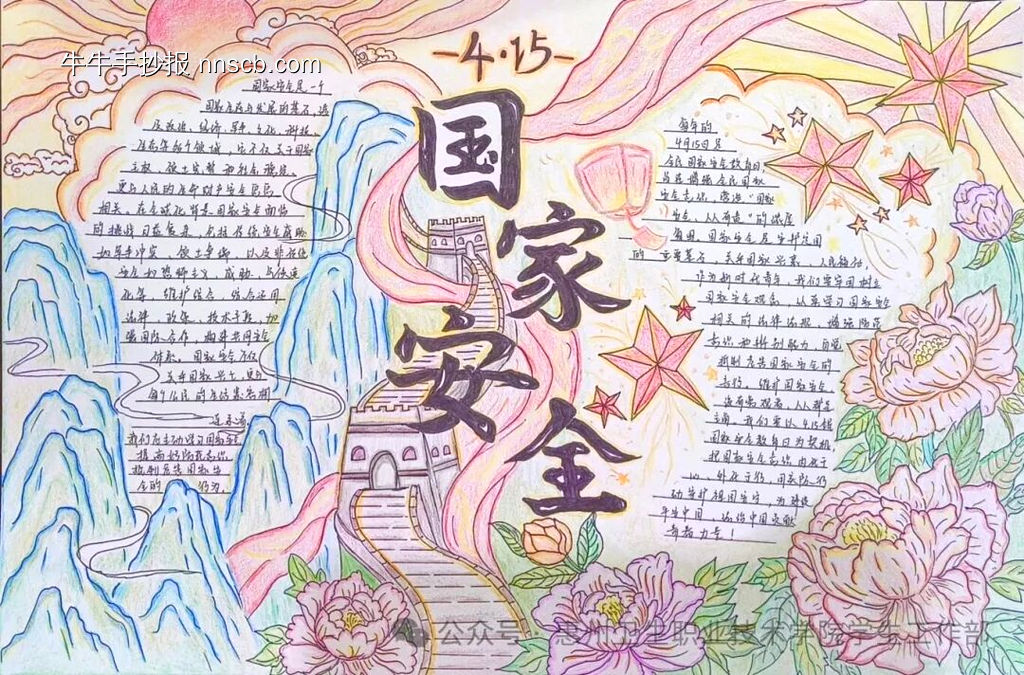 牛牛手抄报 nnscb.com
-4·15-
国家安全
国家安全是一个
国家生存与发展的基石,涉
及政治、经济、军事、文化、科技、
生态等多个领域,它不仅关乎国家
主权、领土完整和社会稳定,
更与人民的生命财产安全息息
相关。在全球化背景国家安全面临
的挑战日益复杂,包括传统安全威胁
如军事冲突、领土争端,以及非传统
安全如恐怖主义、
化等,维护
法律、政策、技术手段,加
强国际合作,构建共同安全
体系。国家安全不仅
关乎国家兴亡,更与
每个公民的生活息息相
我们应主动学习国家安全
提高
抵制危害国家安
全的行为。
每年的
4月15日是
全民国家安全教育日,
旨在增强全民国家
安全意识,营造"国家
安全,人人有责"的浓厚
氛围。国家安全是安邦定国
的重要基石,关乎国家兴衰、人民福祉,
作为新时代青年,我们要牢固树立
国家安全观念,认真学习国家安全
相关的法律法规,增强防范
意识和辨别能力,自觉
抵制危害国家安全的
行为,维护国家安全
没有旁观者,人人都是
主角。我们要以4.15全民
国家安全教育日为契机,
把国家安全意识内化于
心、外化于行,用实际行
动守护祖国安宁,为建设
平安中国、法治中国贡献
青春力量!
公众号·惠州卫生职业技术学院学生工作部